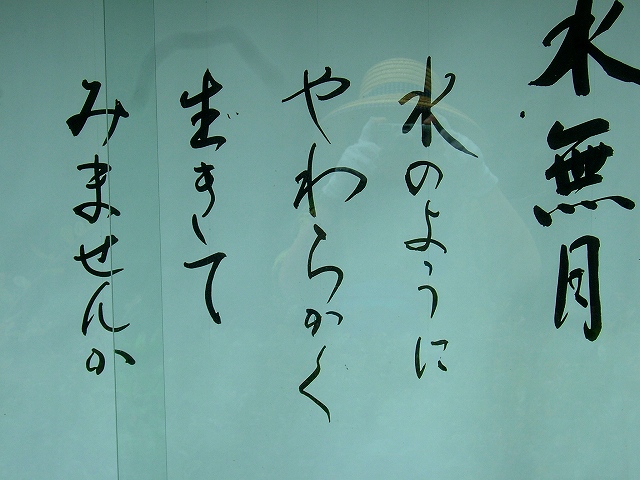 水無月
水のように
やわらかく
生きて
みませんか